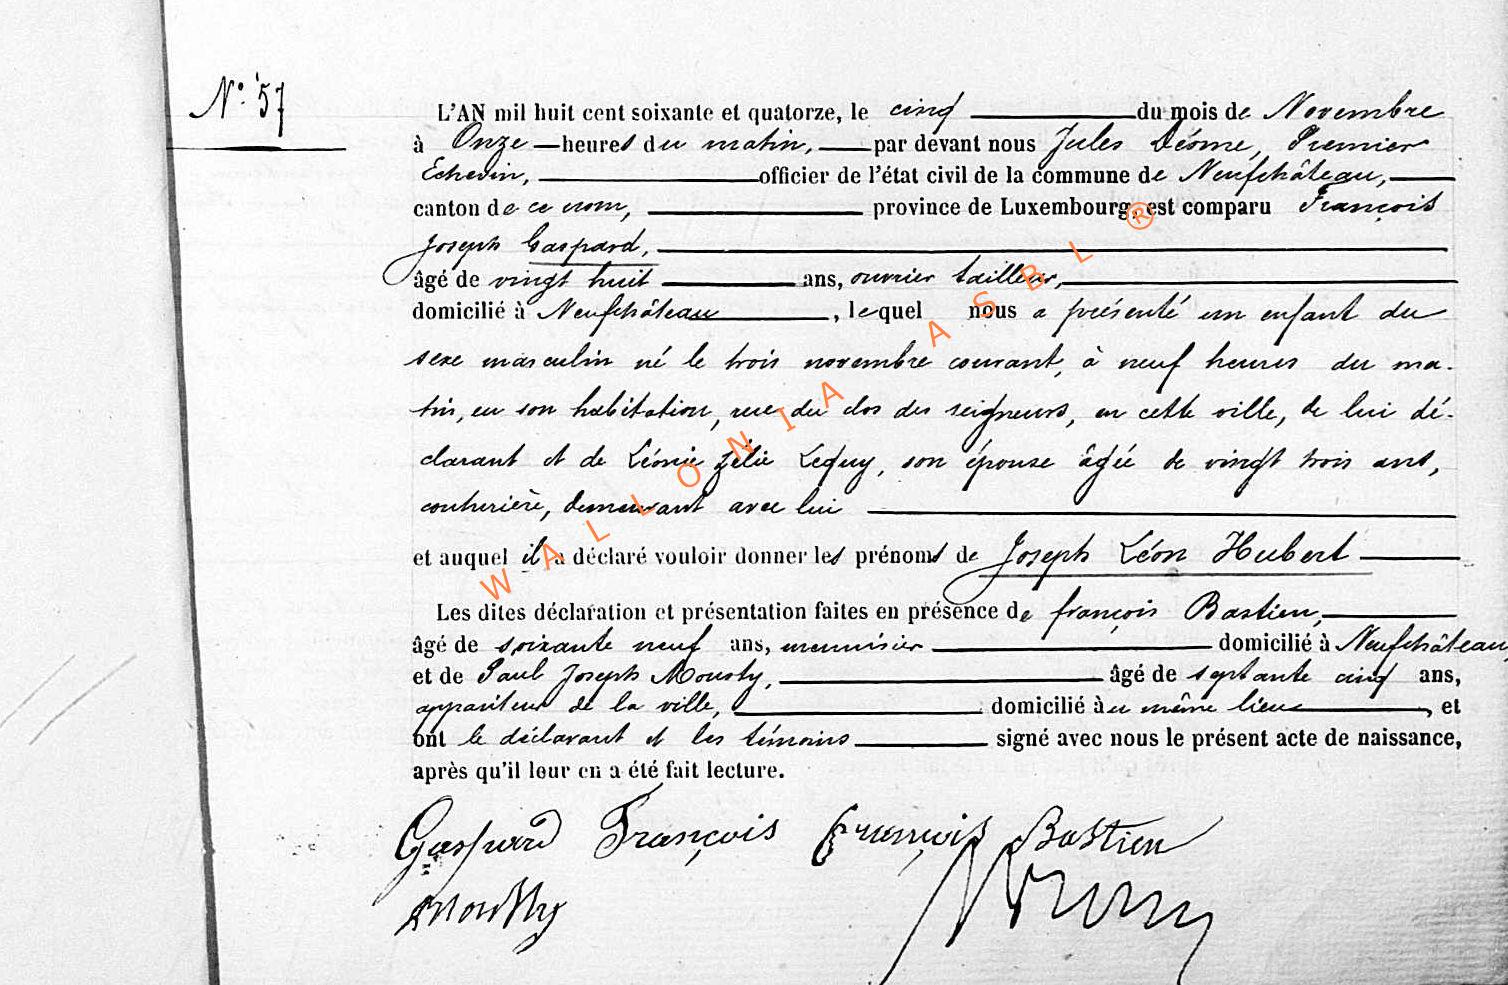 N° 57
L'AN mil huit cent soixante et quatorze, le cinq du mois de Novembre
à Onze heures du matin, par devant nous Jules Déome, Premier
Echevin, officier de l'état civil de la commune de Neufchâteau,
canton de ce nom, province de Luxembourg, est comparu François
Joseph Gaspard,
âgé de vingt huit ans, ouvrier tailleur,
domicilié à Neufchâteau, lequel nous a présenté un enfant du
sexe masculin né le trois novembre courant, à neuf heures du ma-
tin, en son habitation, rue du clos des seigneurs, en cette ville, de lui dé-
clarant et de Léonie Zélie Lequy, son épouse âgée de vingt trois ans,
couturière, demeurant avec lui
et auquel il a déclaré vouloir donner les prénoms de Joseph Léon Hubert
Les dites déclaration et présentation faites en présence de françois Bastien,
âgé de soixante neuf ans, menuisier domicilié à Neufchâteau
et de Paul Joseph Mousty, âgé de septante cinq ans,
appariteur de la ville, domicilié au même lieu, et
ont le déclarant et les témoins signé avec nous le présent acte de naissance,
après qu'il leur en a été fait lecture.
Gaspard François François Bastien
Mousty
WALLONIA ASBL ®